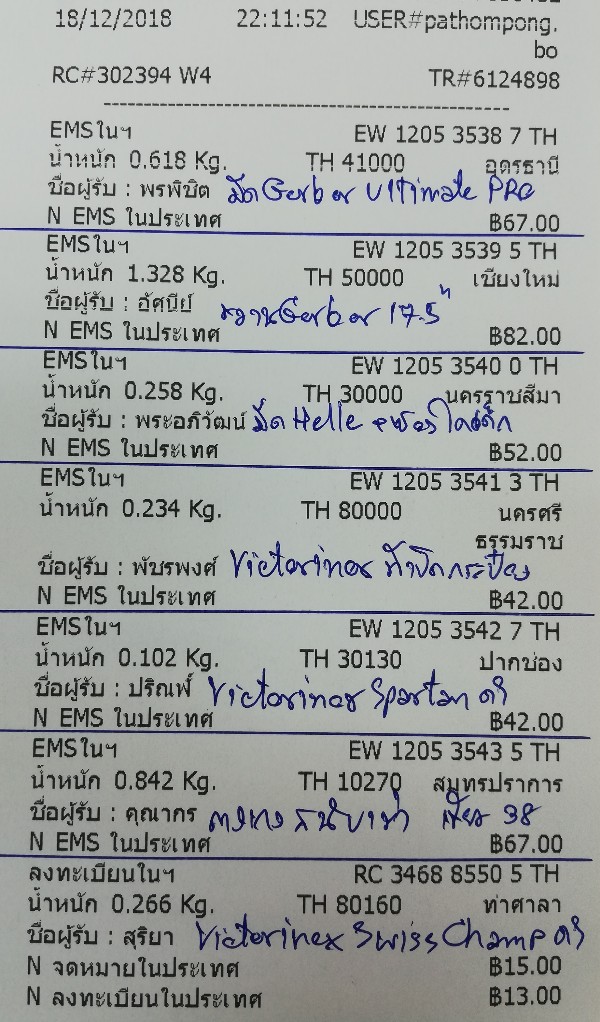 18/12/2018 22:11:52 USER#pathompong.
bo
RC#302394 W4 TR#6124898
EMSในฯ EW 1205 3538 7 TH
น้ำหนัก 0.618 Kg. TH 41000 อุดรธานี
ชื่อผู้รับ : พรพิชิต มีดGerber Ultimate PRO
N EMS ในประเทศ ฿67.00
EMSในฯ EW 1205 3539 5 TH
น้ำหนัก 1.328 Kg. TH 50000 เชียงใหม่
ชื่อผู้รับ : อัศนีย์ ขวานGerber 17.5"
N EMS ในประเทศ ฿82.00
EMSในฯ EW 1205 3540 0 TH
น้ำหนัก 0.258 Kg. TH 30000 นครราชสีมา
ชื่อผู้รับ : พระอภิวัฒน์ มีด Helle
N EMS ในประเทศ ฿52.00
EMSในฯ EW 1205 3541 3 TH
น้ำหนัก 0.234 Kg. TH 80000 นครศรี
ธรรมราช
ชื่อผู้รับ : พัชรพงศ์ Victorinox
N EMS ในประเทศ ฿42.00
EMSในฯ EW 1205 3542 7 TH
น้ำหนัก 0.102 Kg. TH 30130 ปากช่อง
ชื่อผู้รับ : ปริณฬ์ Victorinox Spartan ดำ
N EMS ในประเทศ ฿42.00
EMSในฯ EW 1205 3543 5 TH
น้ำหนัก 0.842 Kg. TH 10270 สมุทรปราการ
ชื่อผู้รับ : คุณากร 38
N EMS ในประเทศ ฿67.00
ลงทะเบียนในฯ RC 3468 8550 5 TH
น้ำหนัก 0.266 Kg. TH 80160 ท่าศาลา
ชื่อผู้รับ : สุริยา Victorinox Swiss Champ ดำ
N จดหมายในประเทศ ฿15.00
N ลงทะเบียนในประเทศ ฿13.00